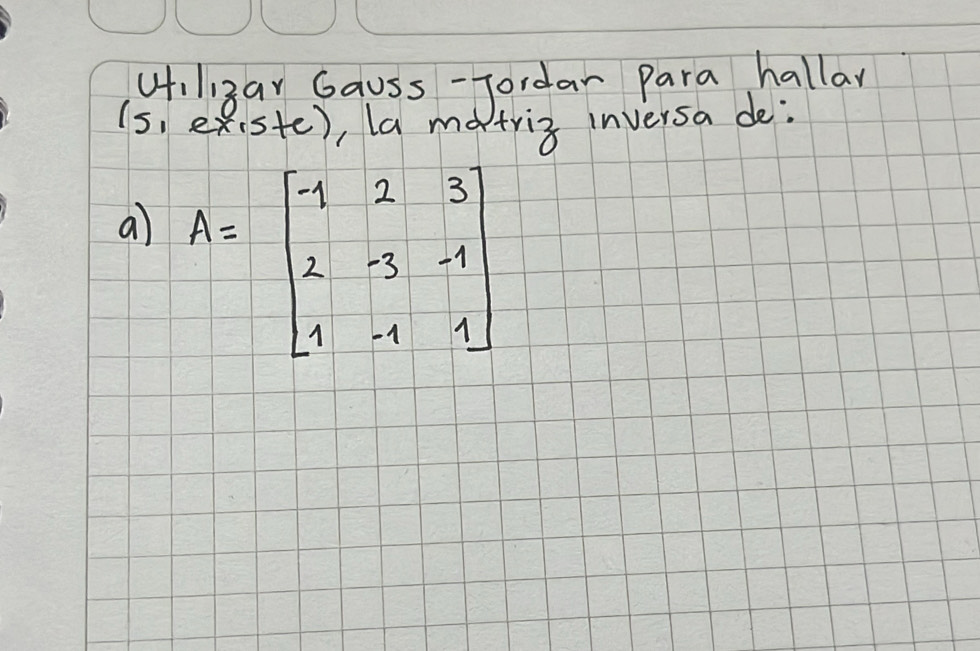 Utilizar Gauss-Jordan para hallar
(si existe), la matriz inversa de:
a) A = [-1 2 3
2 -3 -1
1 -1 1]